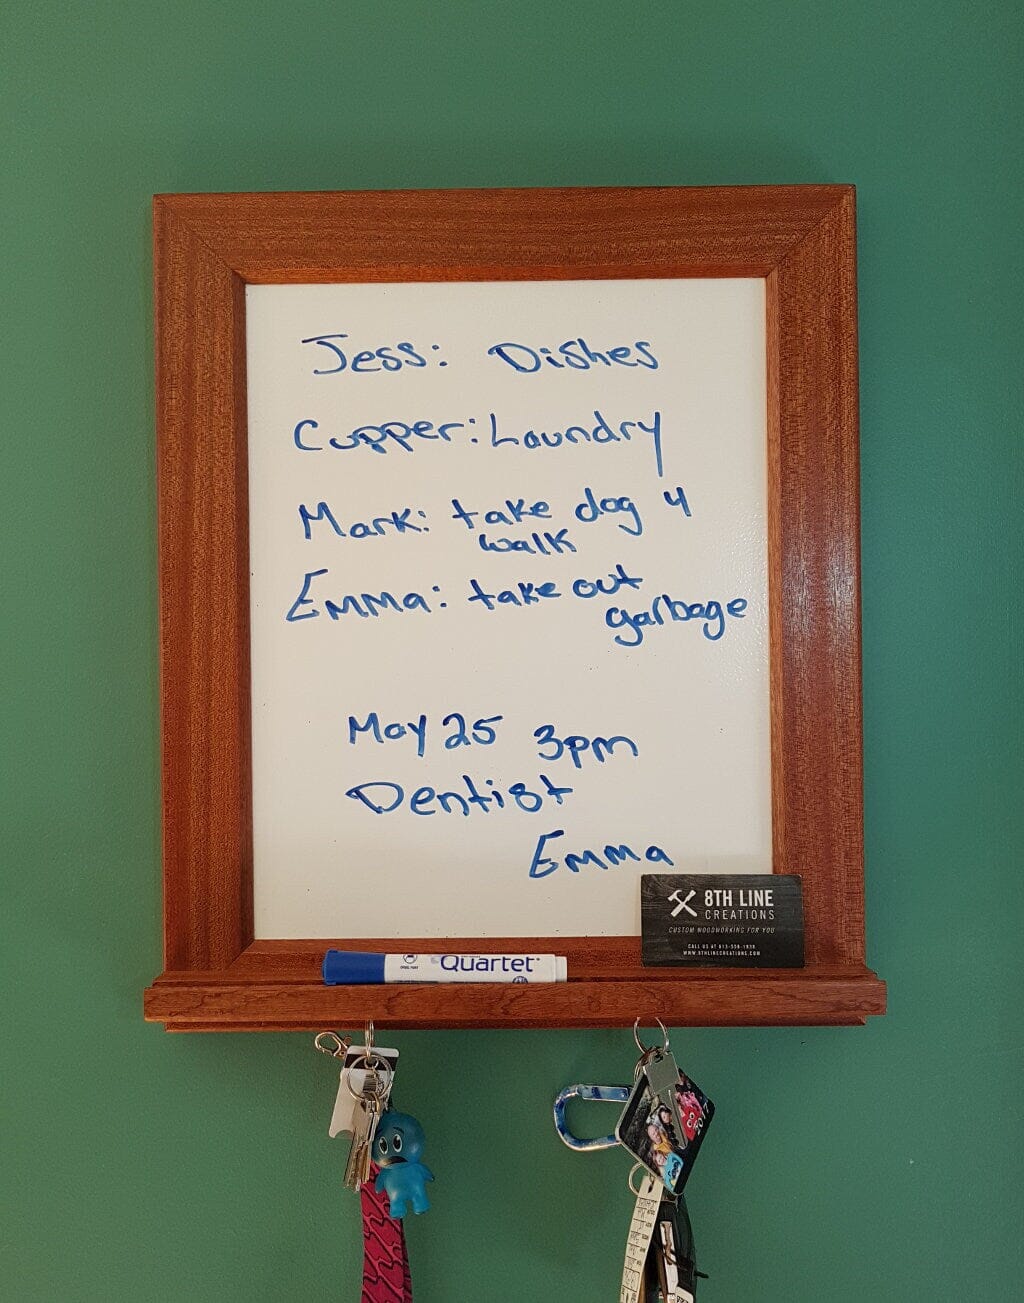 Jess: Dishes
Cupper: Laundry
Mark: take dog 4
walk
Emma: take out
garbage
May 25 3pm
Dentist
Emma
8TH LINE
CREATIONS
CUSTOM WOODWORKING FOR YOU
CALL US AT
WWW.8THLINECREATIONS.COM
Quartet